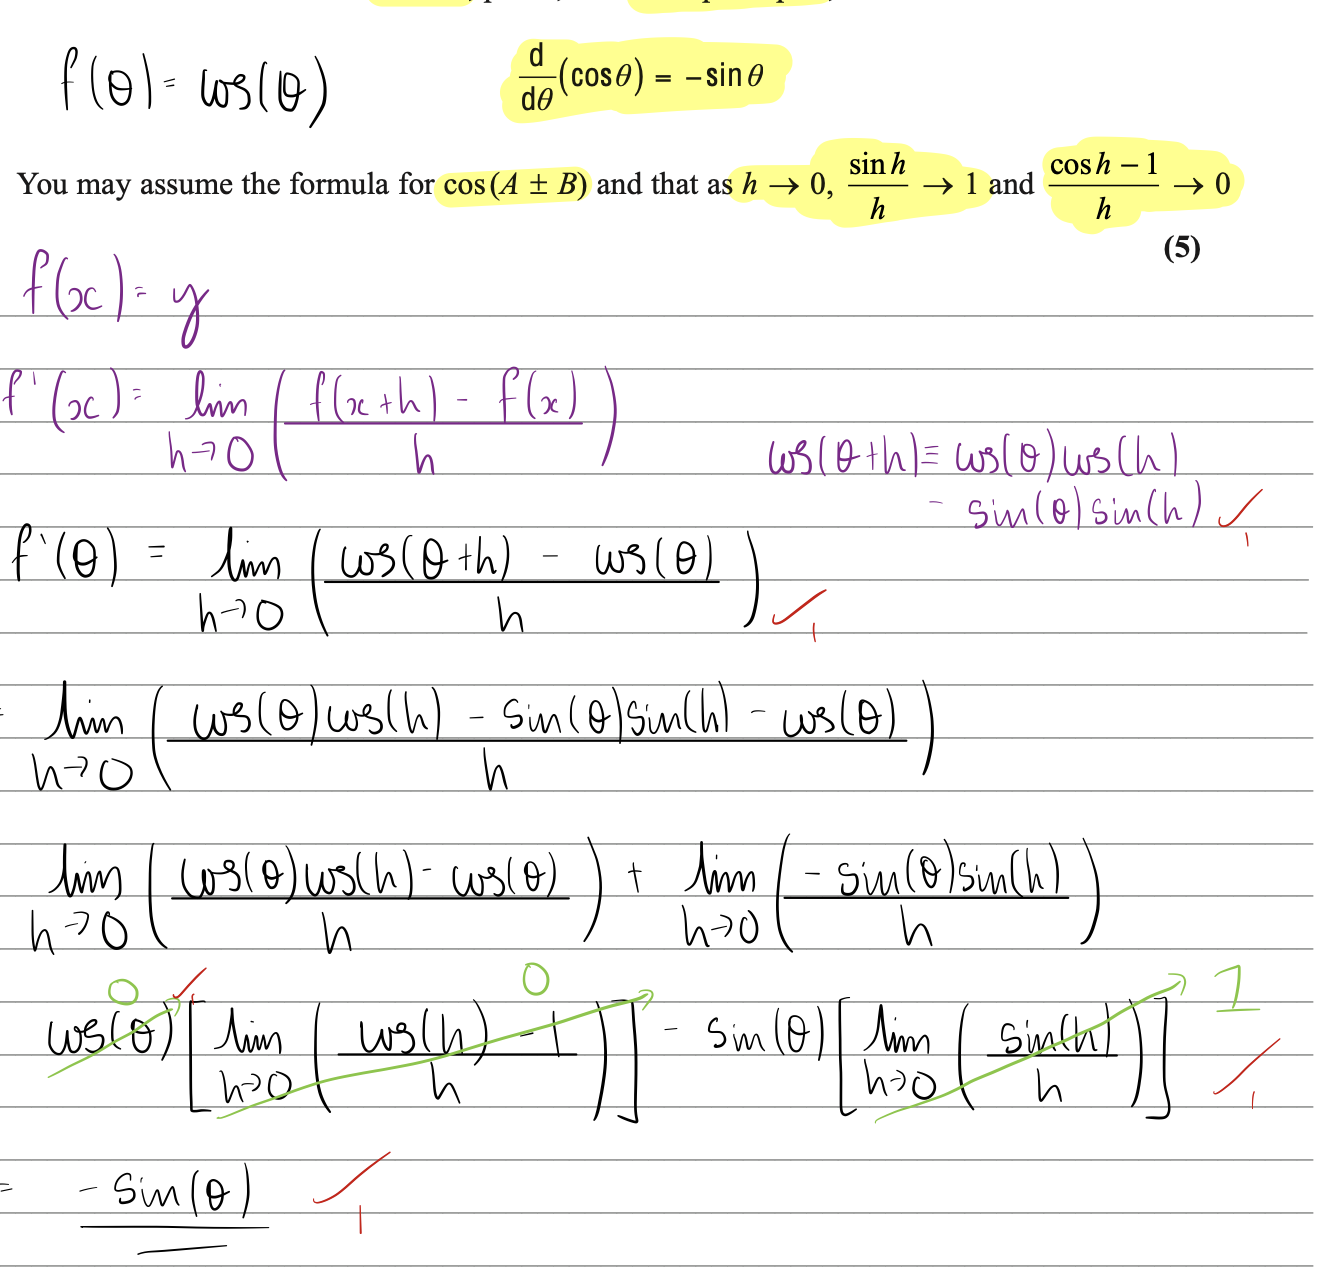 f(θ) = cos(θ)
d/dθ (cosθ) = −sinθ
You may assume the formula for cos(A ± B) and that as h → 0, sin h / h → 1 and cos h − 1 / h → 0
(5)
f(x) = y
f'(x) = lim h→0 ( f(x+h) - f(x) / h )
cos(θ+h) ≡ cos(θ)cos(h)
- sin(θ)sin(h) ✓ 1
f'(θ) = lim h→0 ( cos(θ+h) - cos(θ) / h ) ✓ 1
= lim h→0 ( cos(θ)cos(h) - sin(θ)sin(h) - cos(θ) / h )
lim h→0 ( cos(θ)cos(h) - cos(θ) / h ) + lim h→0 ( - sin(θ)sin(h) / h )
0 ✓ 1 0 1
cos(θ) [ lim h→0 ( cos(h) - 1 / h ) ] - sin(θ) [ lim h→0 ( sin(h) / h ) ] ✓ 1
= - sin(θ) ✓ 1